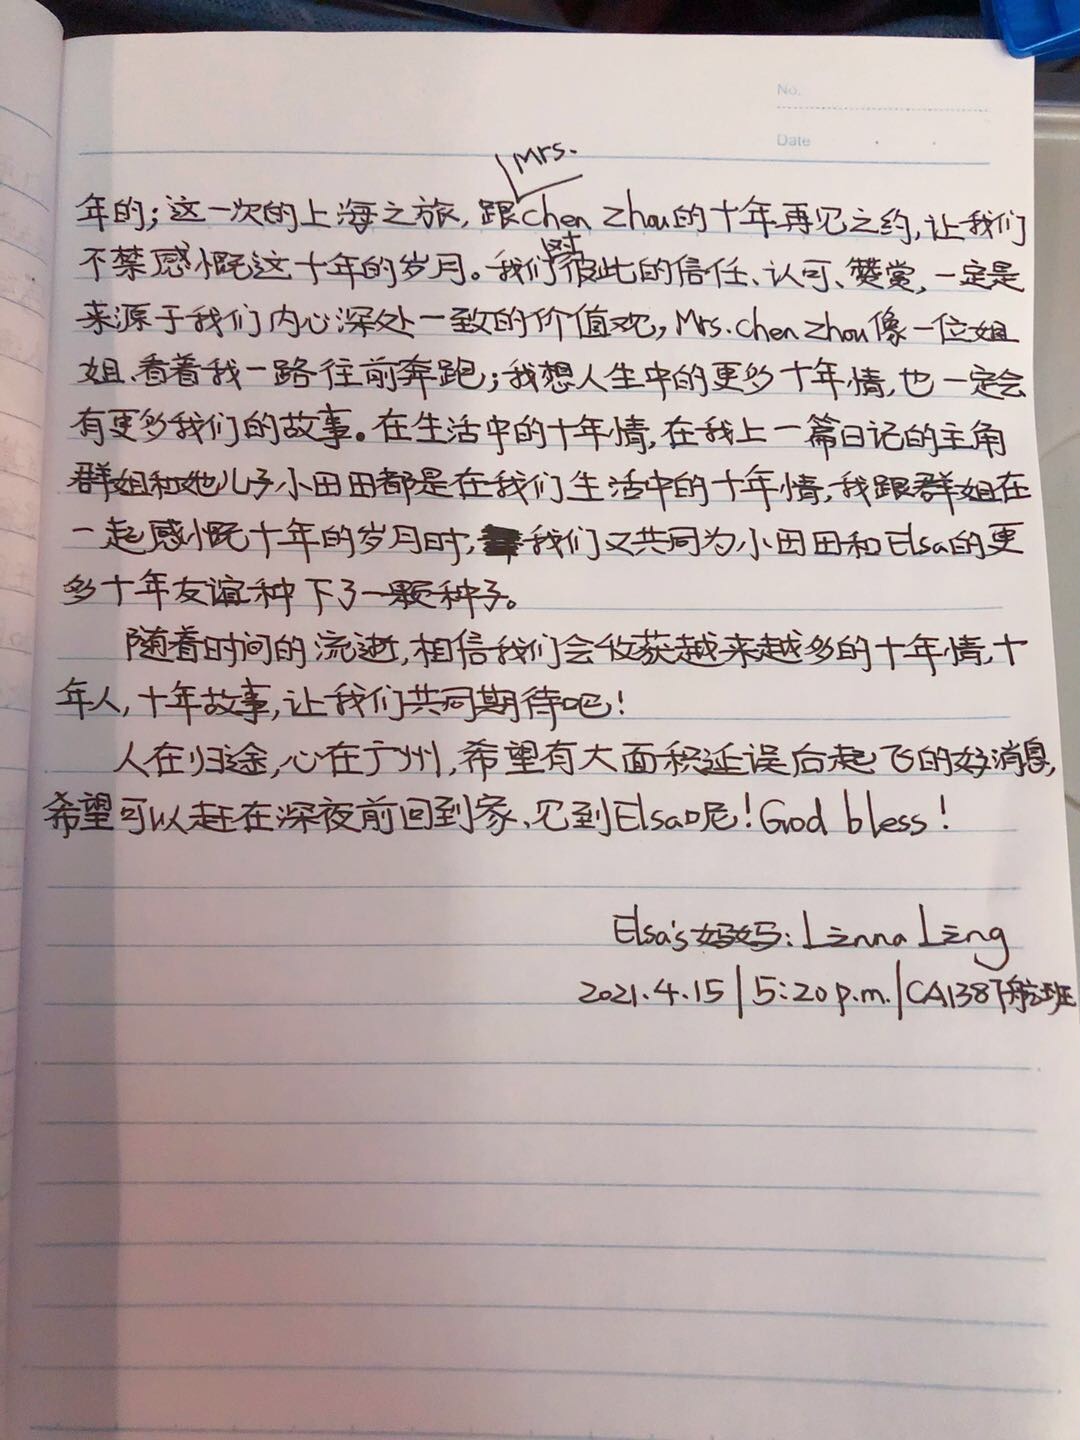 No.
Date
Mrs.
年的；这一次的上海之旅，跟chen zhou的十年再见之约，让我们
对
不禁感慨这十年的岁月。我们彼此的信任、认可、赞赏，一定是
来源于我们内心深处一致的价值观，Mrs.chen zhou像一位姐
姐、看着我一路往前奔跑；我想人生中的更多十年情，也一定会
有更多我们的故事。在生活中的十年情，在我上一篇日记的主角
群姐和她儿子小田田都是在我们生活中的十年情，我跟群姐在
一起感慨十年的岁月时，我们又共同为小田田和Elsa的更
多十年友谊种下了一颗种子。
随着时间的流逝，相信我们会收获越来越多的十年情，十
年人，十年故事，让我们共同期待吧！
人在归途，心在广州，希望有大面积延误后起飞的好消息，
希望可以赶在深夜前回到家、见到Elsa呢！God bless！
Elsa's妈妈：Lenna Leng
2021.4.15|5:20p.m.|CA1387航班